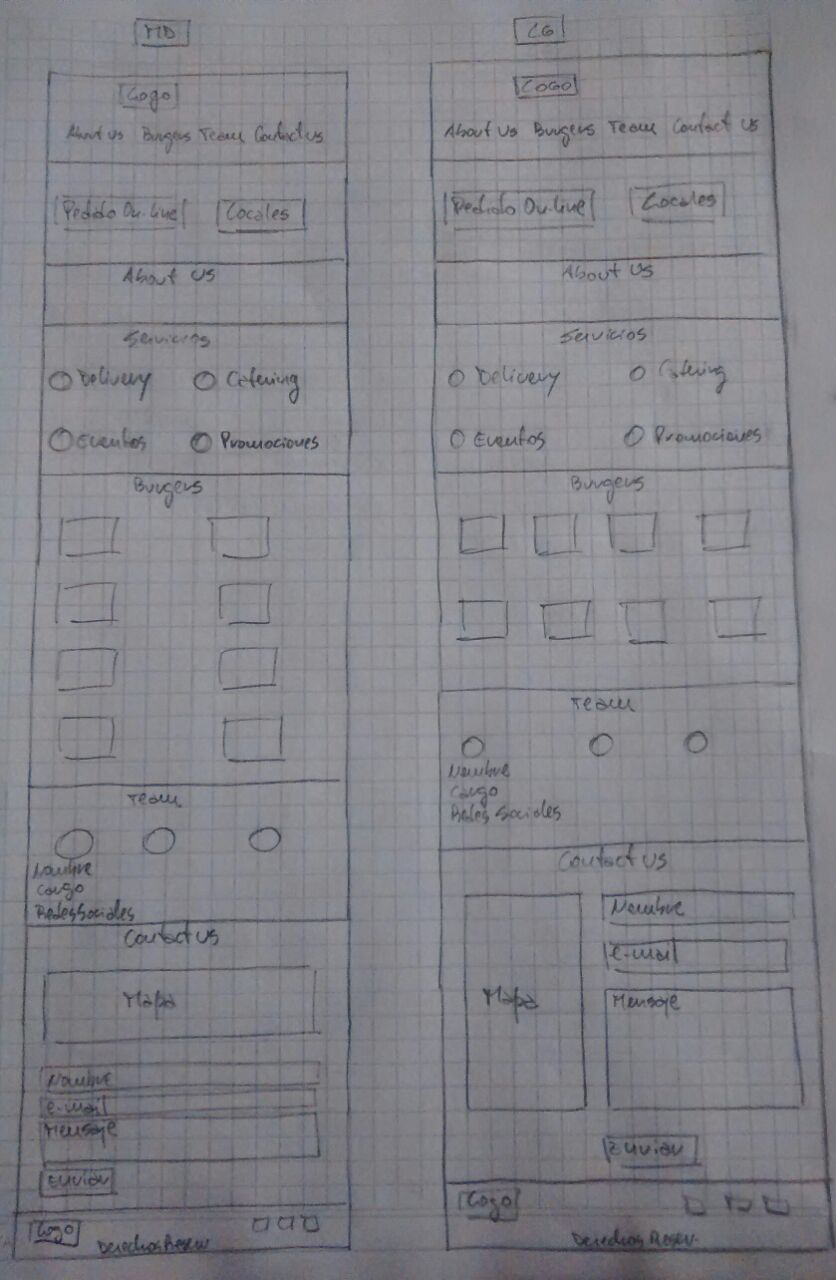 MD
Logo
About us Burgers Team Contact us
Pedido On-line Locales
About us
Servicios
Delivery Catering
Eventos Promociones
Burgers
Team
Nombre
Cargo
Redes Sociales
Contact us
Mapa
Nombre
e-mail
Mensaje
Enviar
Logo
Derechos Reserv
LG
LOGO
About us Burgers Team Contact us
Pedido On-line Locales
About us
Servicios
Delivery Catering
Eventos Promociones
Burgers
Team
Nombre
Cargo
Redes Sociales
Contact us
Mapa
Nombre
e-mail
Mensaje
Enviar
Logo
Derechos Reserv.